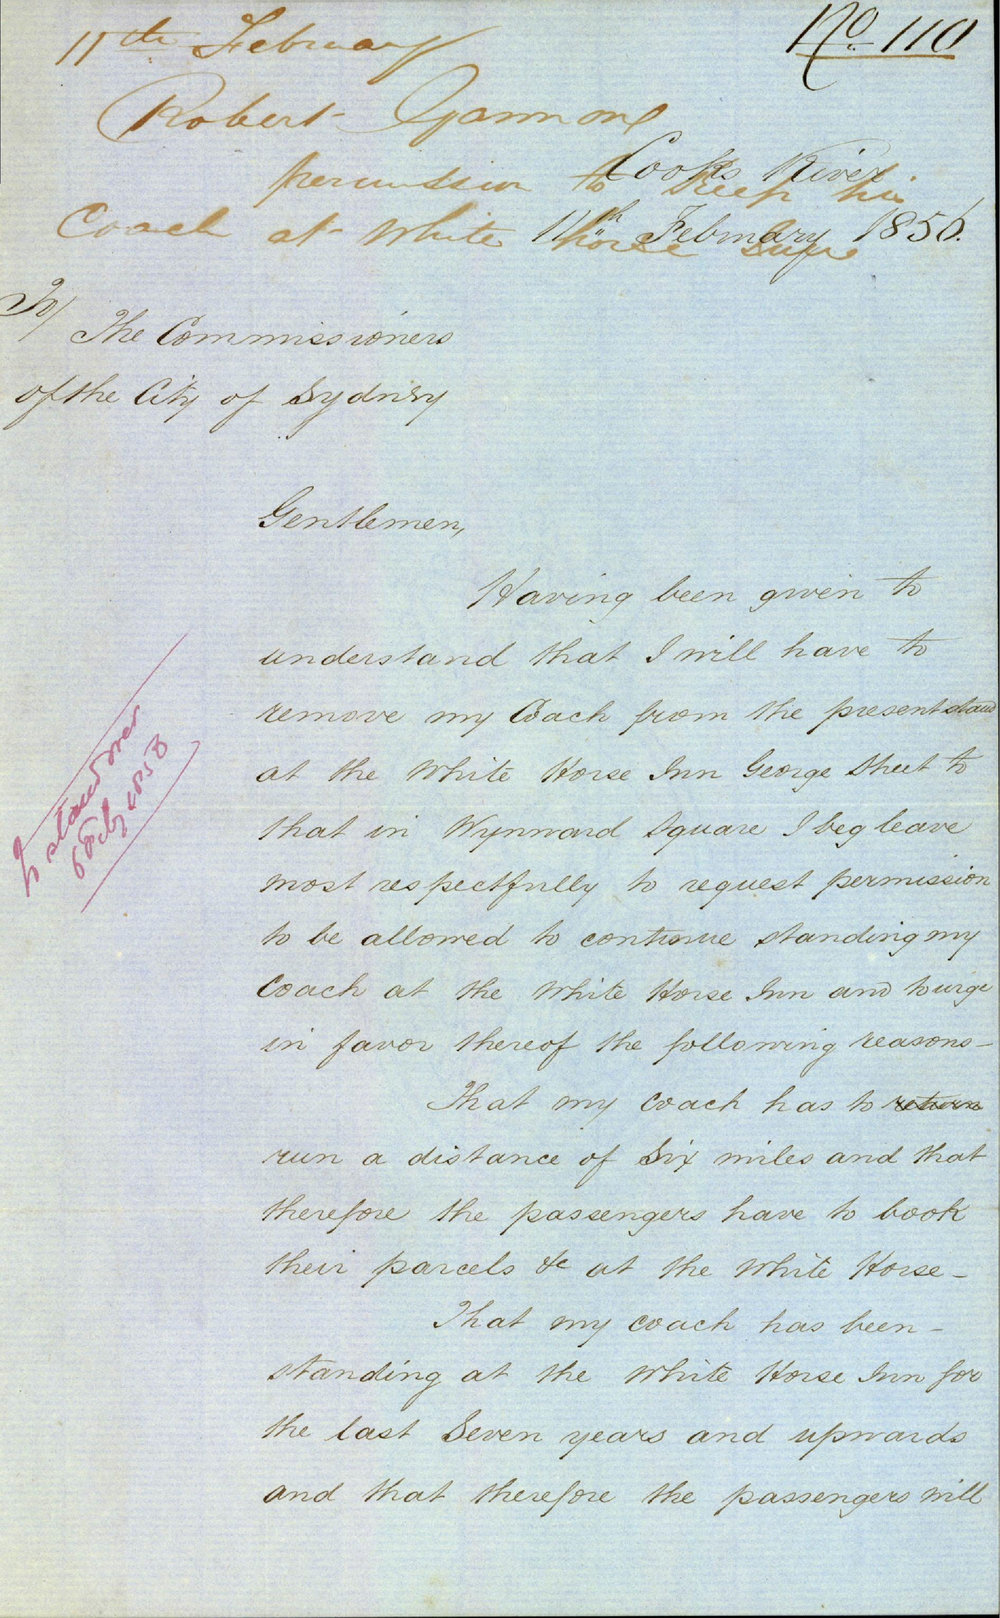 No. 110
11th February
Robert Gammon
permission to keep his
Coach at White horse Inn
Cooks River
11th February 1856.
To/
The Commissioners
of the City of Sydney
Gentlemen,
Having been given to
understand that I will have to
remove my Coach from the present stand
at the White Horse Inn George Street to
that in Wynward Square I beg leave
most respectfully to request permission
to be allowed to continue standing my
Coach at the White Horse Inn and to urge
in favor thereof the following reasons—
That my Coach has to return
run a distance of Six miles and that
therefore the passengers have to book
their parcels &c at the White Horse—
That my coach has been—
standing at the White Horse Inn for
the last Seven years and upwards
and that therefore the passengers will
To stand over